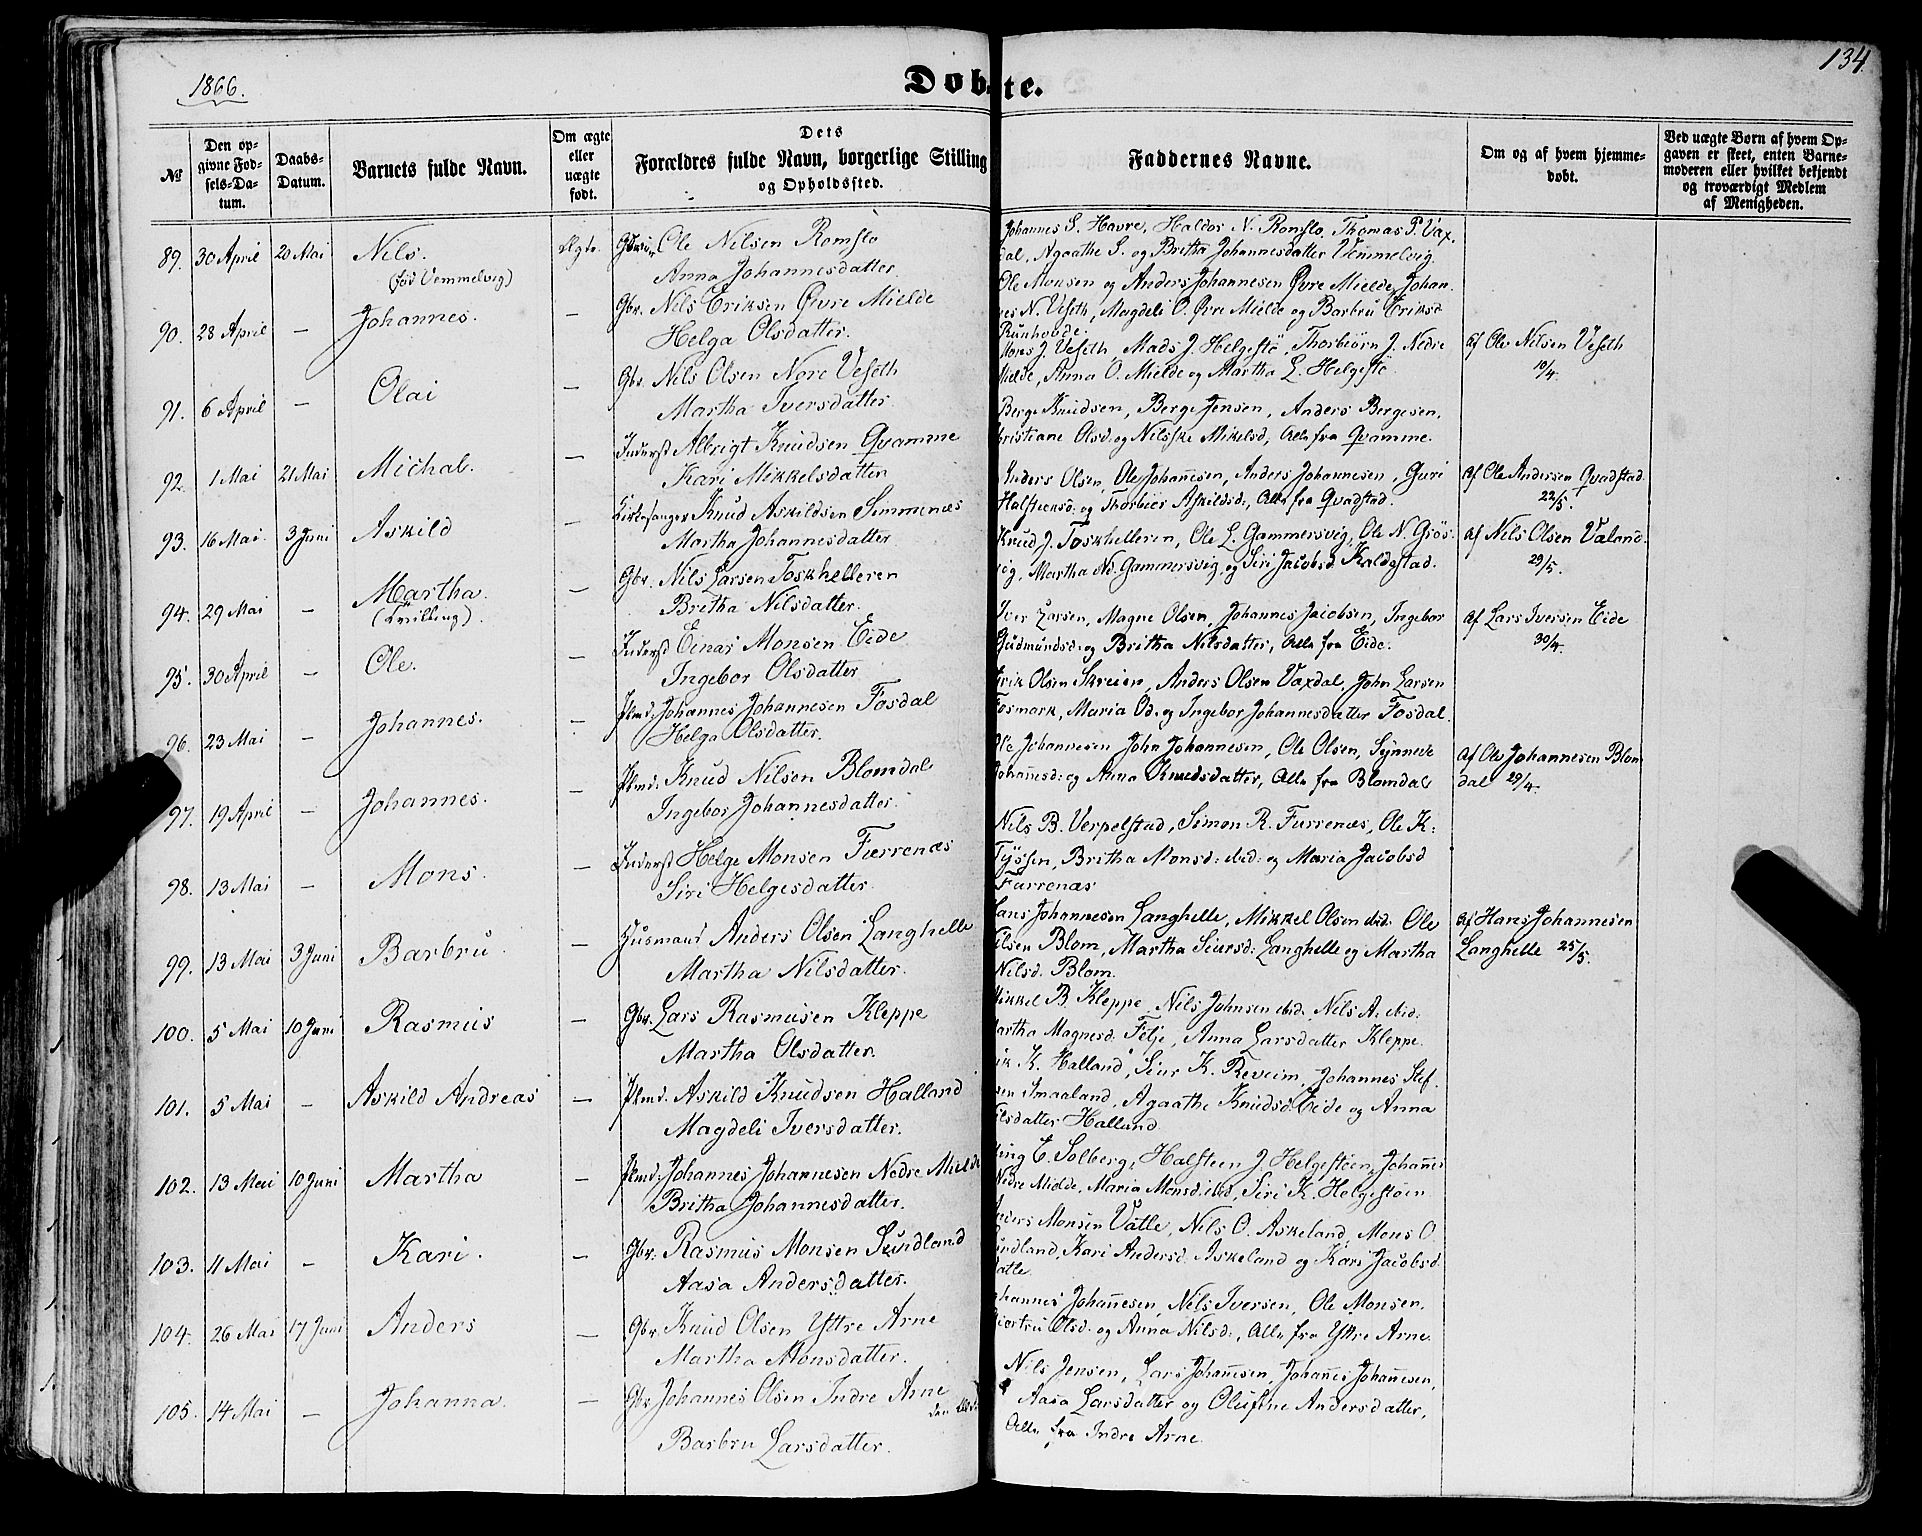 134.
1866.
Døbte.
No
Den opgivne Fødsels-Datum.
Daabs-Datum.
Barnets fulde Navn.
Om ægte eller uægte født.
Dets Forældres fulde Navn, borgerlige Stilling og Opholdssted.
Faddernes Navne.
Om og af hvem hjemmedøbt.
Ved uægte Børn af hvem Opgaven er skeet, enten Barnemoderen eller hvilket bekjendt og troværdigt Medlem af Menigheden.
89. 30 April 20 Mai Nils. Ægte. Ole Nilsen Romslo
(fød Vemmelvig) Anna Johannesdatter.
Johannes S. Havre, Haldor N. Romslo, Thomas P. Vax
dal, Agaathe S. og Britha Johannesdatter Vemmelvig
90. 28 April — Johannes. — Gbr. Nils Eriksen Øvre Mielde
Helga Olsdatter.
Ole Monsen og Anders Johannesen Øvre Mielde, Johan
nes N. Veseth, Magdeli O. Øvre Mielde og Barbru Eriksd
Runhovde.
91. 6 April — Olai — Gbr. Nils Olsen Nøre Veseth
Martha Iversdatter
Mons J. Veseth, Mads J. Helgestø, Thorbiørn J. Nedre
Mielde, Anna O. Mielde og Martha L. Helgestø
af Ole Nilsen Veseth
10/4.
92. 1 Mai 21 Mai Michal. — Inderst Albrigt Knudsen Qvamme
Kari Mikkelsdatter
Berge Knudsen, Berge Jensen, Anders Bergesen,
Christiane Olsd. og Nilske Mikelsd, Alle fra Qvamme.
93. 16 Mai 3 Juni Askild — Kirkesanger Knud Askildsen Simmenæs
Martha Johannesdatter
Anders Olsen, Ole Johanesen, Anders Johannesen, Guri
Halsteensd: og Thorbior Askildsd:, Alle fra Qvadstad.
af Ole Andersen Qvadstad
22/5.
94. 29 Mai — Martha. — Gbr. Nils Larsen Toskhelleren
(Tvilling). Britha Nilsdatter.
Knud J. Toskhelleren, Ole L. Gammersvig, Ole N. Grøs
vig, Martha Nd. Gammersvig, og Siri Jacobsd Kaldestad.
af Nils Olsen Valand.
29/5.
95. 30 April — Ole. — Inderst Einar Monsen Eide
Ingebor Olsdatter
Iver Larsen, Magne Olsen, Johannes Jacobsen, Ingebor
Gudmundsd: og Britha Nilsdatter, Alle fra Eide.
af Lars Iversen Eide
30/4.
96. 23 Mai — Johannes. — Plmd. Johannes Johannesen Fosdal
Helga Olsdatter.
Erik Olsen Skreien, Anders Olsen Vaxdal, John Larsen
Fosmark, Maria Od. og Ingebor Johannesdatter Fosdal.
97. 19 April — Johannes. — Plmd. Knud Nilsen Blomdal
Ingebor Johannesdatter.
Ole Johannesen, John Johannesen, Ole Olsen, Synneve
Johanesd: og Anna Knudsdatter, Alle fra Blomdal
af Ole Johannesen Blom
dal 29/4.
98. 13 Mai — Mons. — Inderst Helge Monsen Furrenæs
Siri Helgesdatter.
Nils B. Verpelstad, Simon R. Furrenæs, Ole K:
Tyssen, Britha Monsd: ibid: og Maria Jacobsd
Furrenæs
99. 13 Mai 3 Juni Barbru. — Husmand Anders Olsen Langhelle
Martha Nilsdatter.
Hans Johannesen Langhelle, Mikkel Olsen ibid: Ole
Nilsen Blom, Martha Siursd: Langhelle og Martha
Nilsd. Blom.
af Hans Johannesen
Langhelle 25/5.
100. 5 Mai 10 Juni Rasmus — Gbr. Lars Rasmusen Kleppe
Martha Olsdatter.
Mikkel B Kleppe, Nils Johnsen ibid: Nils A: ibid:
Martha Magnesd. Felje, Anna Larsdatter Kleppe.
101. 5 Mai — Askild Andreas — Plmd. Askild Knudsen Halland
Magdeli Iversdatter.
Erik K. Halland, Siur K. Reveim, Johannes Stef
sen Smaaland, Agaathe Knudsd: Eide og Anna
Nilsdatter Halland.
102. 13 Mai 10 Juni Martha — Plmd. Johannes Johannesen Nedre Mielde
Britha Johannesdatter.
E. Solberg, Halsteen J. Helgestøen, Johanes
Nedre Mielde, Maria Monsd. ibid, Siri K. Helgestøen
103. 11 Mai — Kari. — Gbr. Rasmus Monsen Sundland
Aasa Andersdatter.
Anders Monsen Vatle, Nils O. Askeland, Mons O
Sundland, Kari Andersd. Askeland og Kari Jacobsd.
Vatle.
104. 26 Mai 17 Juni Anders — Gbr. Knud Olsen Yttre Arne
Martha Monsdatter.
Johannes Johanesen, Nils Iversen, Ole Monsen,
Giertru Olsd. og Anna Nilsd:, Alle fra Yttre Arne.
105. 14 Mai — Johanna. — Gbr. Johannes Olsen Indre Arne
Barbru Larsdatter.
Nils Jensen, Lars Johanesen, Johanes Johanesen,
Aasa Larsdatter og Olufine Andersdatter,
Alle fra Indre Arne.